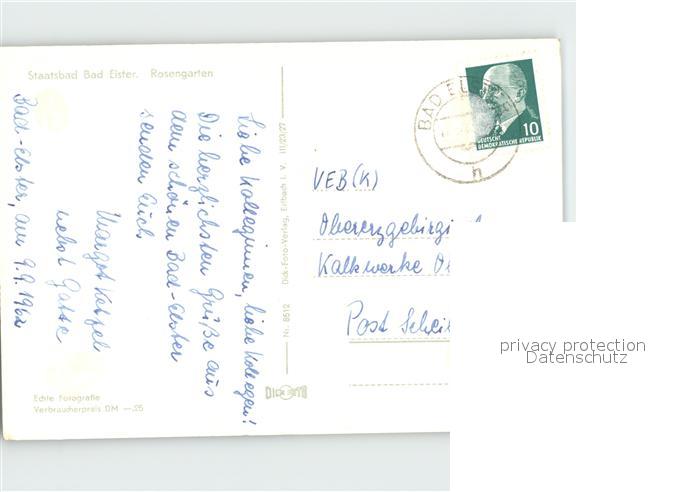 Staatsbad Bad Elster. Rosengarten
Bad-Elster, am 9.9.1962
Liebe Kolleginnen, liebe Kollegen!
Die herzlichsten Grüße aus
dem schönen Bad-Elster
senden Euch
Margot
nebst Gatte
Echte Fotografie
Verbraucherpreis DM —,25
Nr. 8512 Dick-Foto-Verlag, Erlbach i. V. III/21/27
DICK FOTO
BAD EL
h
10
DEUTSCHE
DEMOKRATISCHE REPUBLIK
VEB(K)
Obererzgebirgi
Kalkwerke
Post Schei
privacy protection
Datenschutz